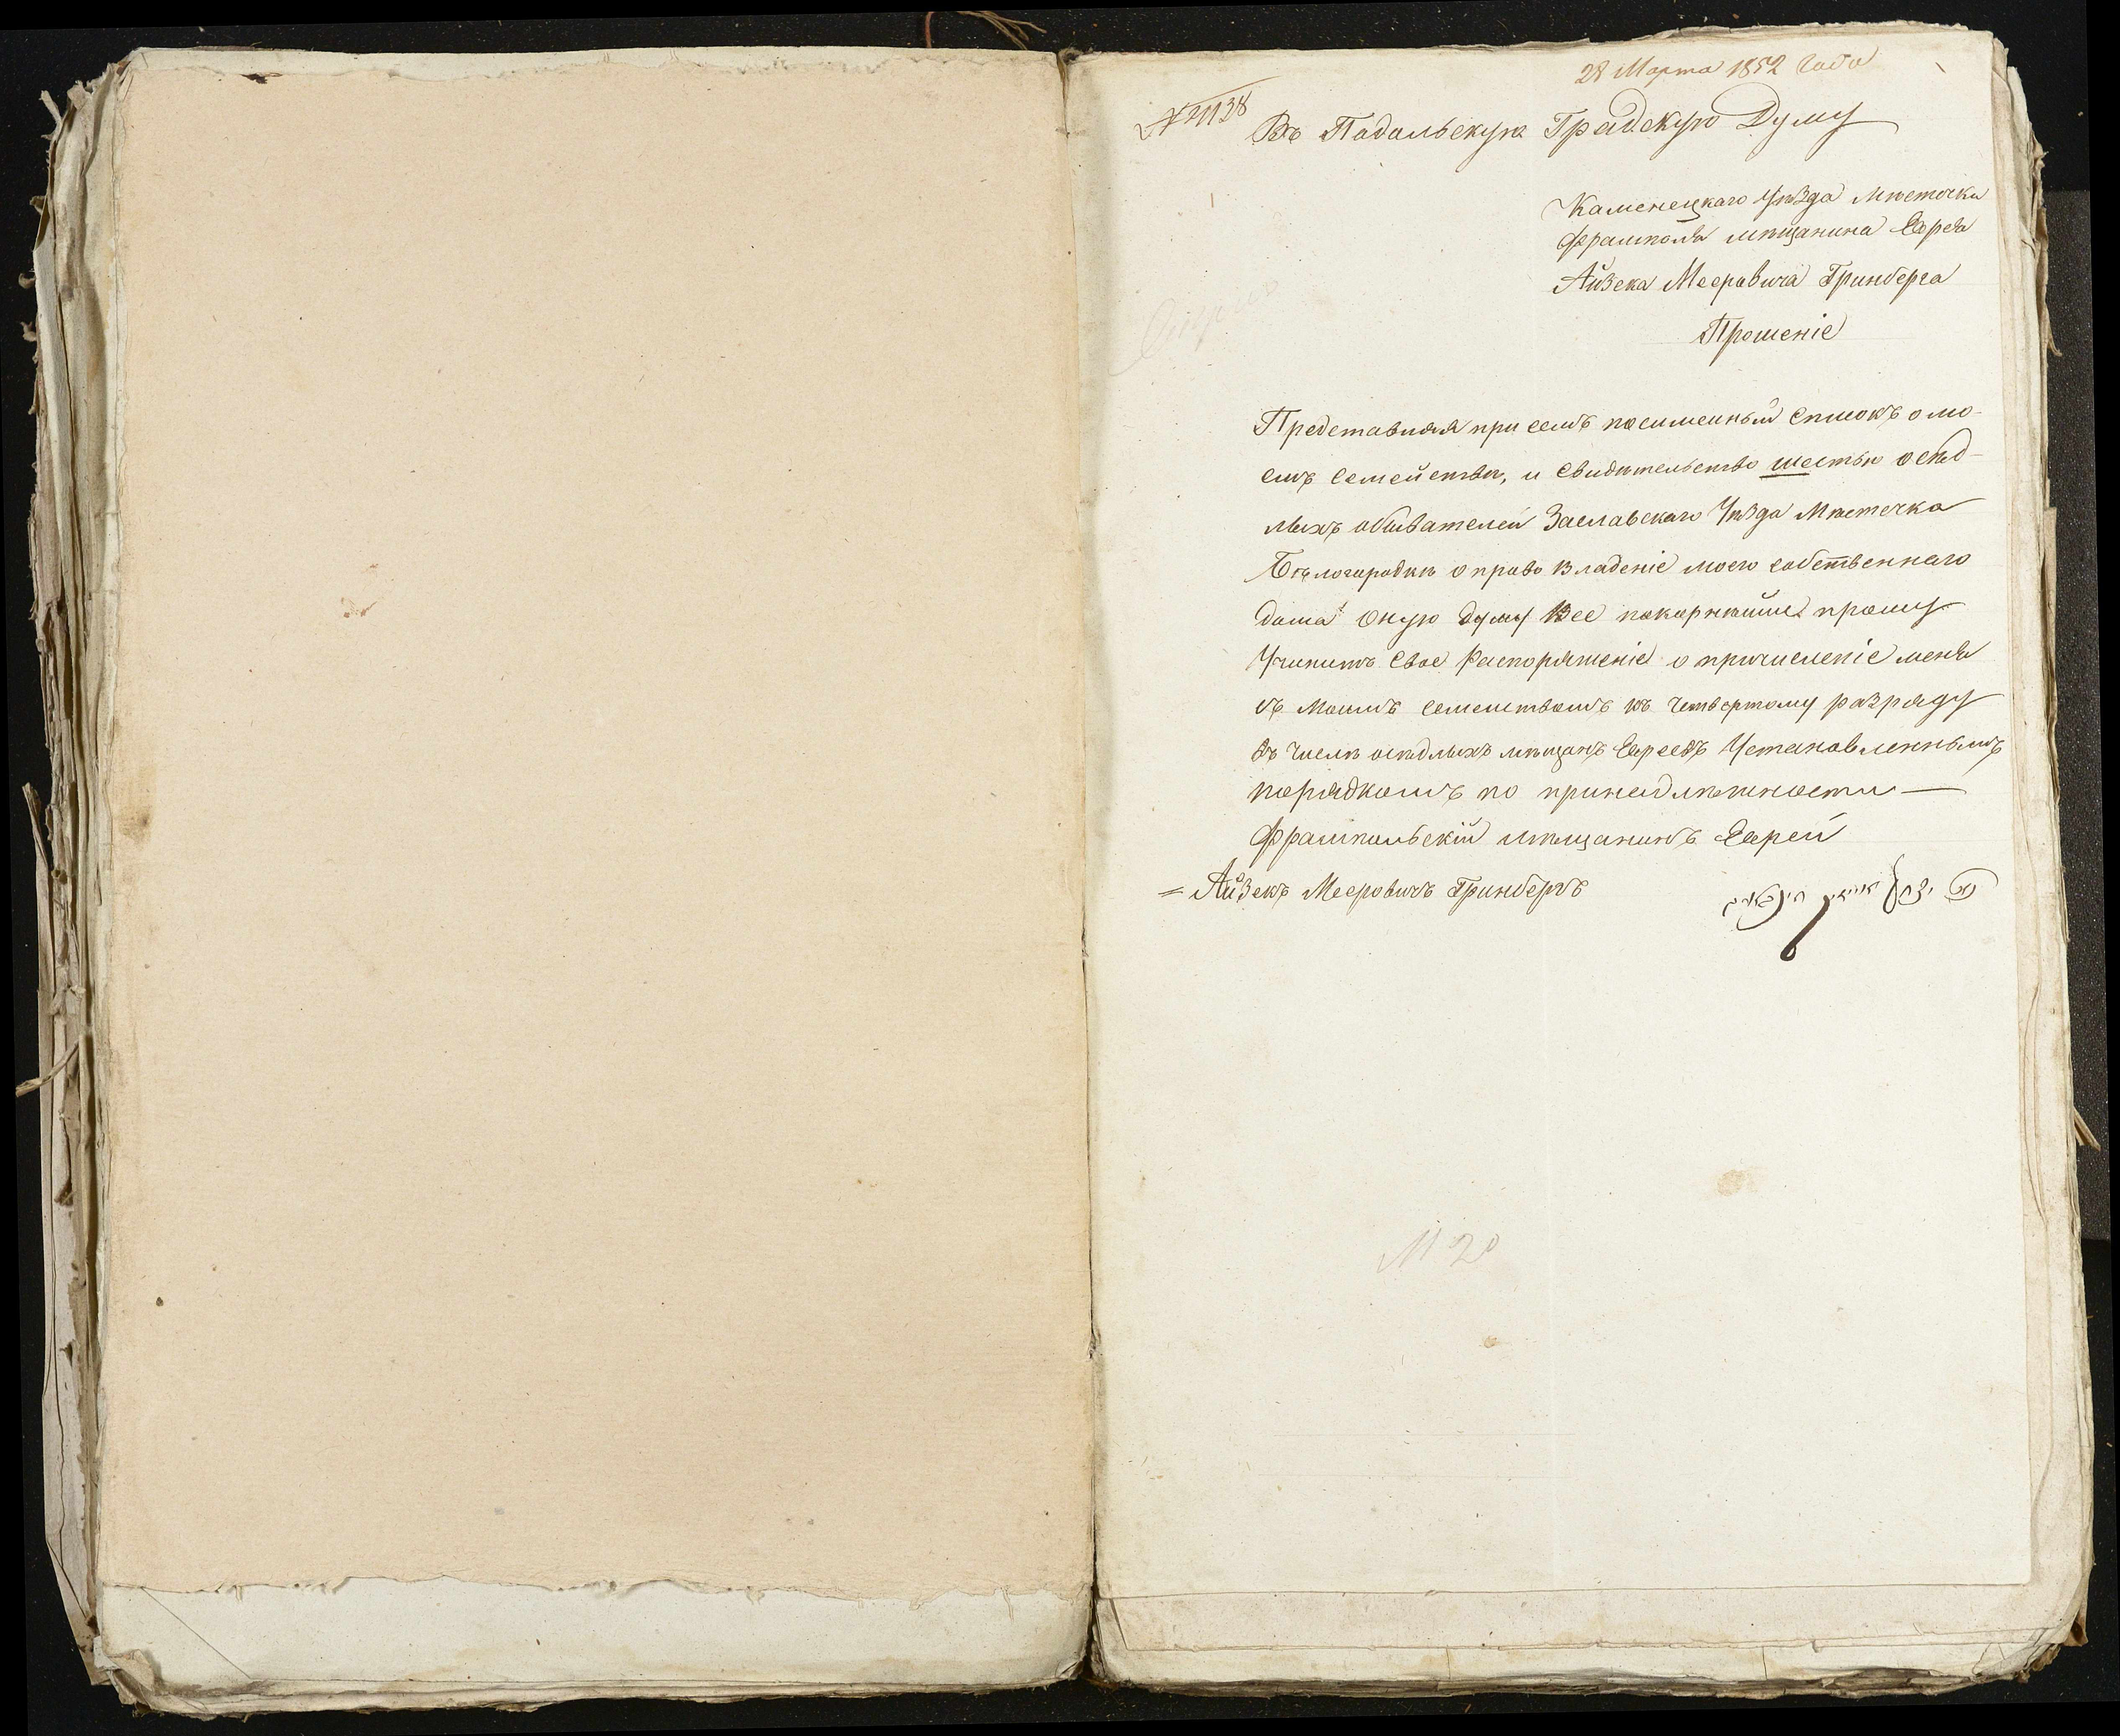 28 Марта 1852 Года
№ 1138
Въ Падальскую Градскую Думу
Каменецкаго Уѣзда Мѣстечка
Фрамполя мѣщанина Еврея
Айзека Мееровича Гринберга
Прошеніе
Представляя при семъ паименный списокъ о мо-
емъ семействѣ, и свидѣтельство шестью осѣд-
лыхъ обывателей Заславскаго Уѣзда Мѣстечка
Бѣлогородки о право владеніе моего собственнаго
дома оную думу все покорнѣйше прошу
Учинить свое Распоряженіе о причисленіе меня
съ моимъ семействомъ къ четвертому разряду
въ числѣ осѣдлыхъ мѣщанъ Евреевъ Установленнымъ
порядкомъ по принадлѣжности —
Фрампольскій мѣщанинъ Еврей
= Айзекъ Мееровичъ Гринбергъ
№ 20